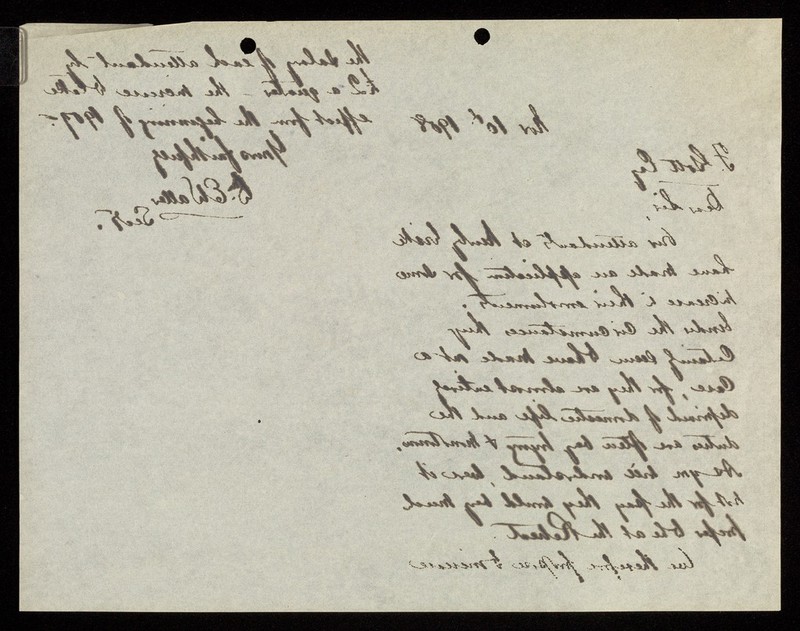 Nov 10th 1908
F. Scott Esq
Dear Sir,
Our attendants at
have made an application for some
increase in their emoluments.
Under the circumstances they
certainly seem to have made out a
case, for they are almost entirely
deprived of domestic life and the
duties are often very trying & monotonous.
As you will understand, were it
not for the pay they would very much
prefer to be at the Retreat.
We therefore propose to increase
the salary of each attendant by
£2 a quarter – the increase to take
effect from the beginning of 1909.
Yours faithfully
Watts
Secy.